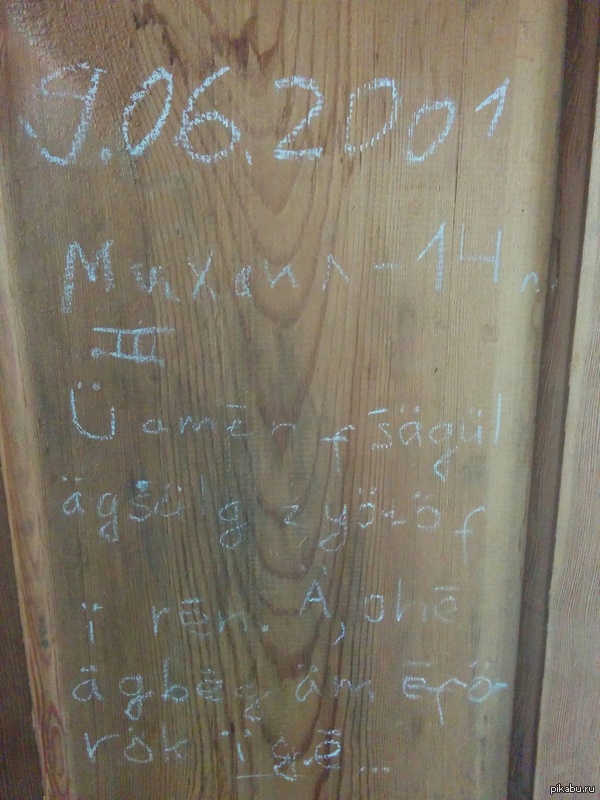 9.06.2001
Михаил - 14 л.
III
Ü amēn f šägül
ägšül g zyörö f
ï rēn. Á, ohē
ägbèg äm
rök ïgē...
pikabu.ru